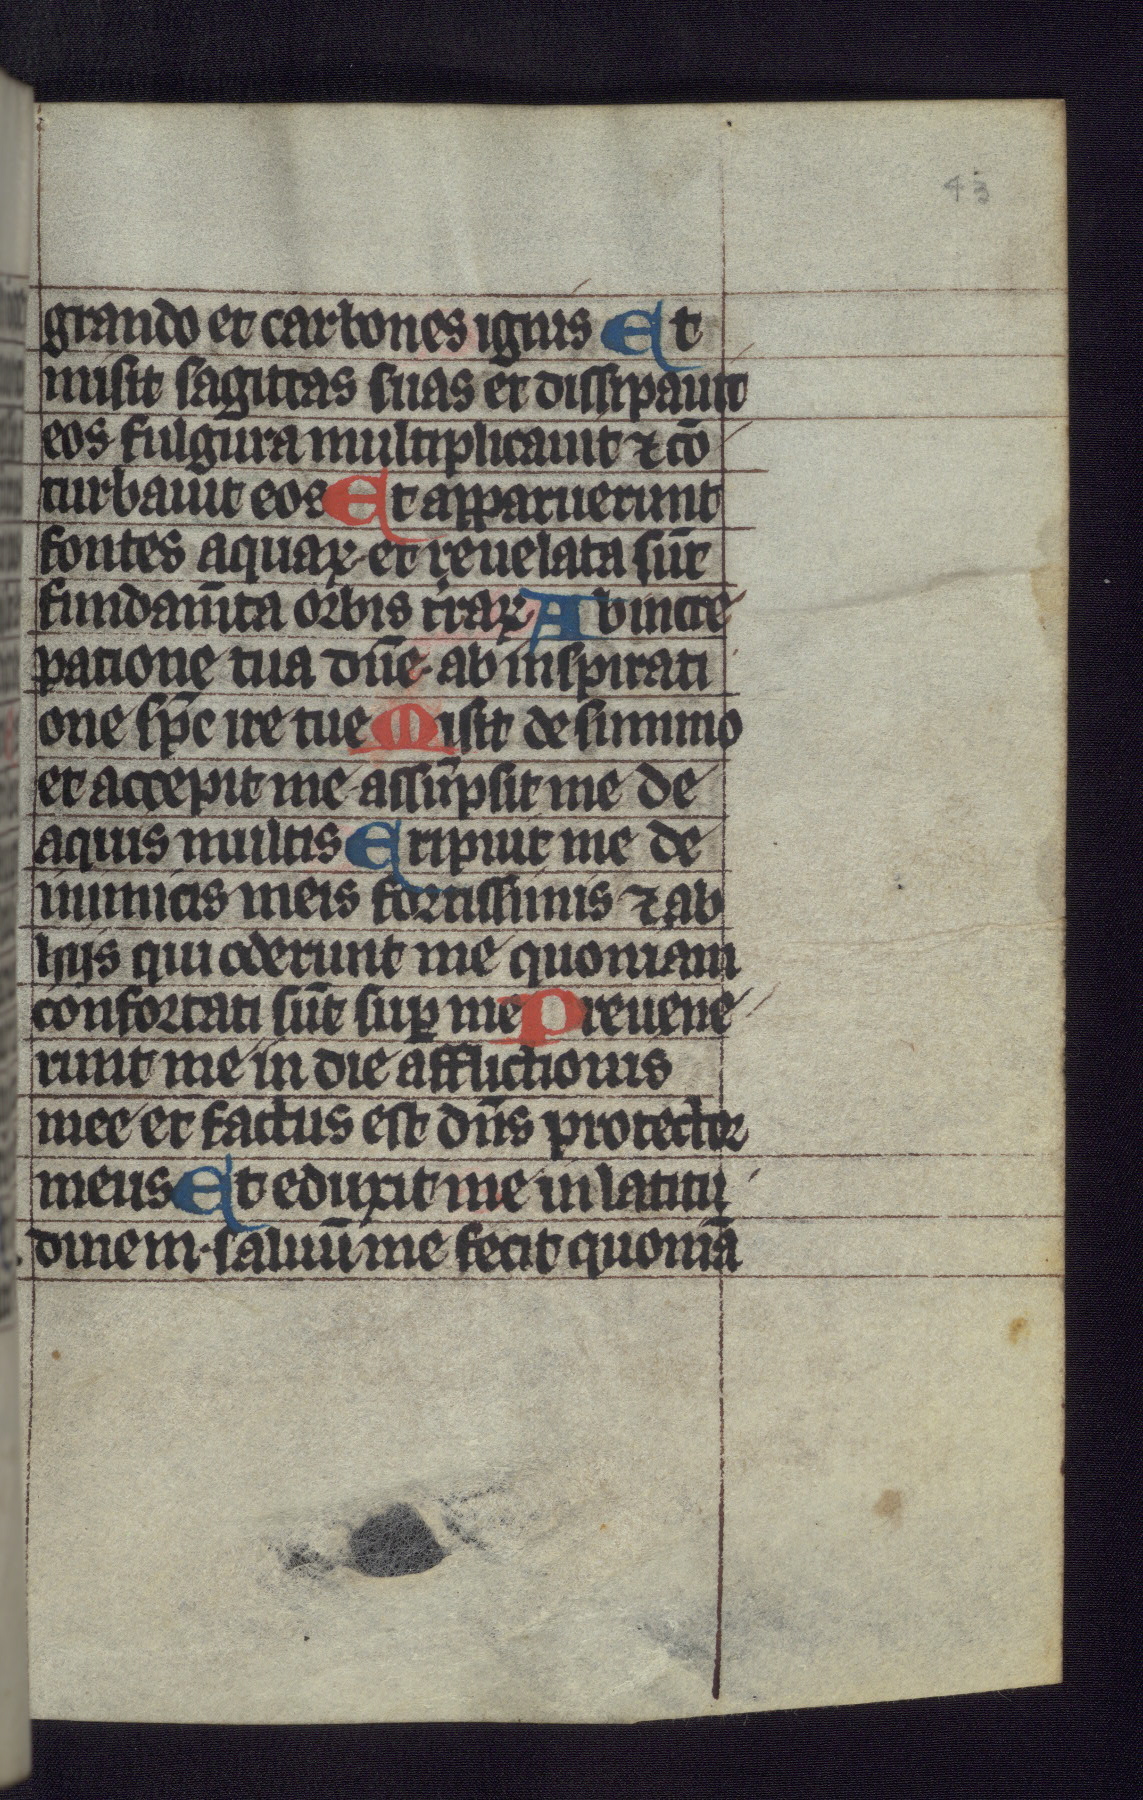 43
grando et carbones ignis Et
misit sagittas suas et dissipauit
eos fulgura multiplicauit ⁊ cō
turbauit eos Et apparuerunt
fontes aquaꝝ et reuelata sūt
fundam̄ta orbis t̄raꝝ Ab incre
patione tua dn̄e. ab inspirati
one sp̄c ire tue Misit de summo
et accepit me assūpsit me de
aquis multis Eripiuit me de
inimicis meis fortissimis ⁊ ab
hijs qui oderunt me quoniam
confortati sūt suꝑ me Preuene
runt me in die afflictionis
mee et factus est dn̄s protector
meus Et eduxit me in latitu
dinem. saluū me fecit quoniā